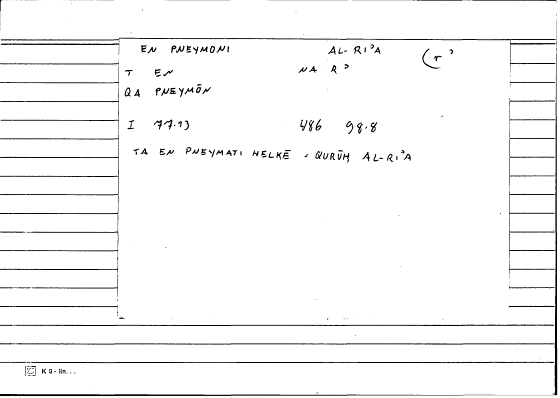 EN PNEYMONI AL-RI˒A (r ˒
T EN NA R ˒
QA PNEYMŌN
I 77.13 486 98.8
TA EN PNEYMATI HELKĒ = QURŪḤ AL-RI˒A
K 9 - lin...